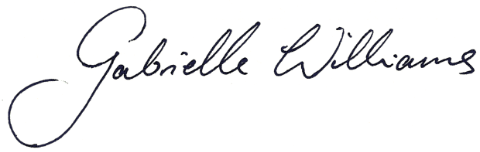 Gabrielle Williams